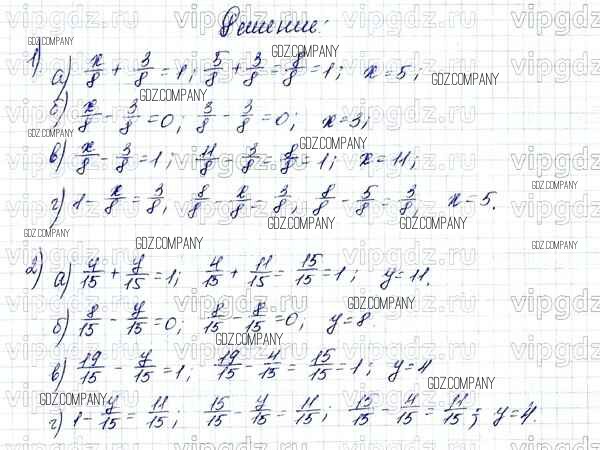 Решение:
1) а) x/8 + 3/8 = 1; 5/8 + 3/8 = 8/8 = 1; x = 5;
б) x/8 - 3/8 = 0; 3/8 - 3/8 = 0; x = 3;
в) x/8 - 3/8 = 1; 11/8 - 3/8 = 8/8 = 1; x = 11;
г) 1 - x/8 = 3/8; 8/8 - x/8 = 3/8; 8/8 - 5/8 = 3/8; x = 5.
2) а) 4/15 + y/15 = 1; 4/15 + 11/15 = 15/15 = 1; y = 11.
б) 8/15 - y/15 = 0; 8/15 - 8/15 = 0; y = 8.
в) 19/15 - y/15 = 1; 19/15 - 4/15 = 15/15 = 1; y = 4
г) 1 - y/15 = 11/15; 15/15 - y/15 = 11/15; 15/15 - 4/15 = 11/15; y = 4.
GDZ.COMPANY
vipgdz.ru